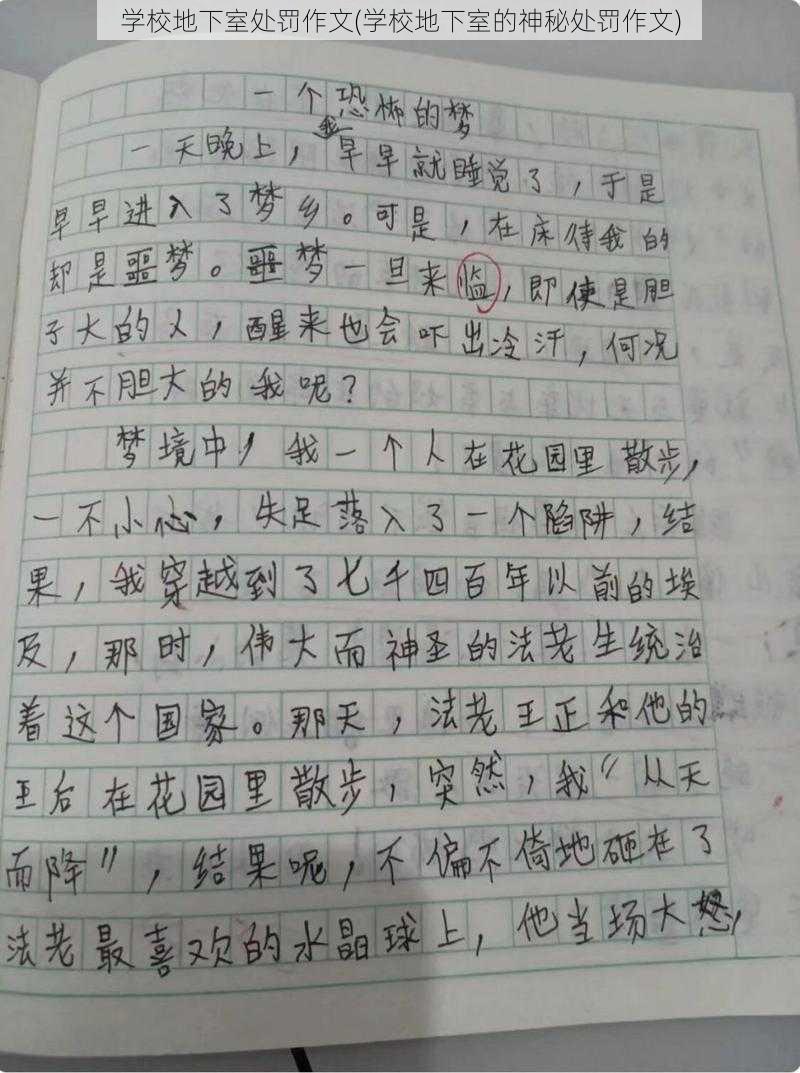 学校地下室处罚作文(学校地下室的神秘处罚作文)
一个恐怖的梦
一天晚上，我早早就睡觉了，于是
早早进入了梦乡。可是，在床待我的
却是噩梦。噩梦一旦来临，即使是胆
子大的人，醒来也会吓出冷汗，何况
并不胆大的我呢？
梦境中，我一个人在花园里散步，
一不小心，失足落入了一个陷阱，结
果，我穿越到了七千四百年以前的埃
及，那时，伟大而神圣的法老王统治
着这个国家。那天，法老王正和他的
王后在花园里散步，突然，我“从天
而降”，结果呢，不偏不倚地砸在了
法老最喜欢的水晶球上，他当场大怒，